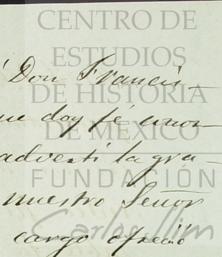 CENTRO DE
ESTUDIOS
DE HISTORIA
DE MÉXICO
FUNDACIÓN
Carlos Slim
Don Francis-
ue doy fé conoz
advertí la gra-
nuestro Señor
cargo ofreció